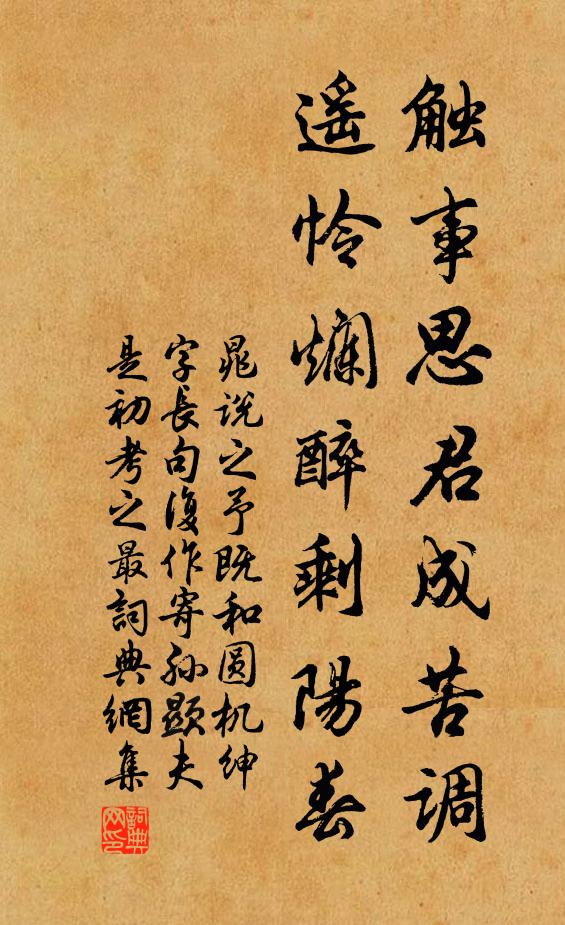 触事思君成苦调
遥怜爛醉剩陽春
晁说之予既和圆机绅
字長句復作寄孙顕夫
是初考之最詞典網集
詞典网印